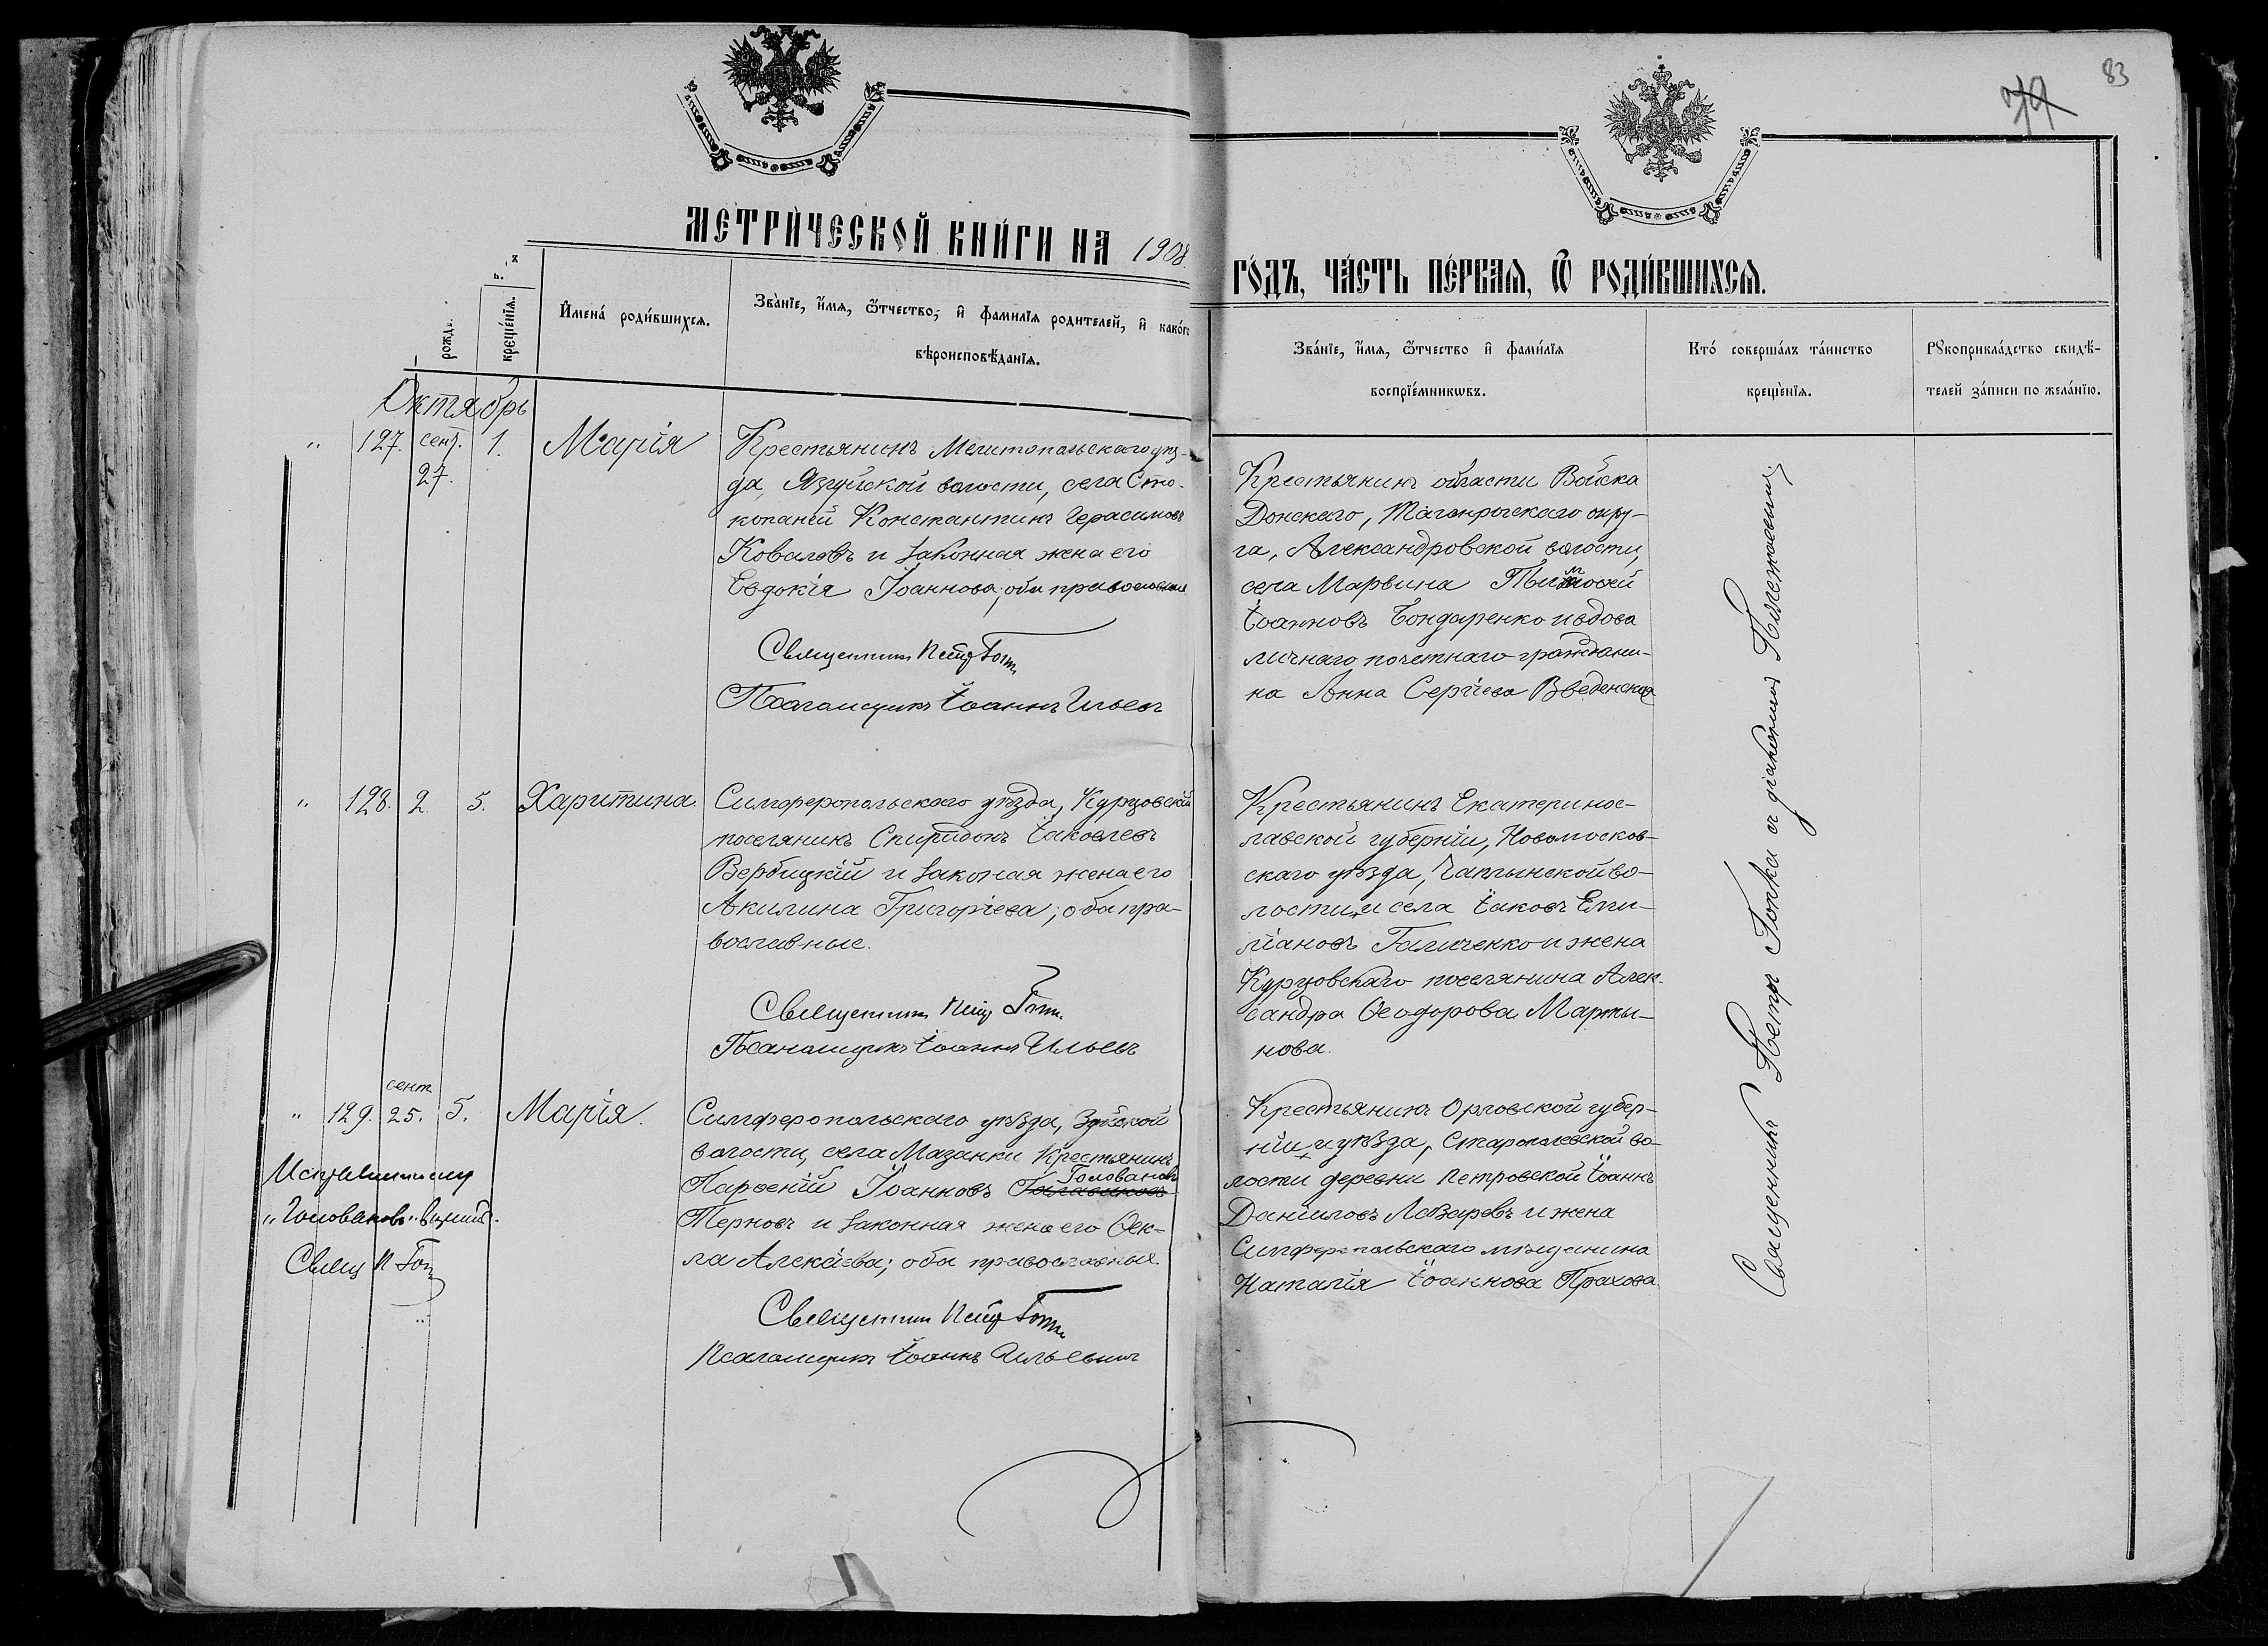 83
79
МЕТРИ́ЧЕСКОЙ КНИ́ГИ НА 1908
ГО́ДЪ, ЧА́СТЬ ПЕ́РВАЯ, Ѿ РОДИ́ВШИХСЯ.
креще́нїѧ.
И҆мена́ роди́вшихсѧ.
Зва́нїе, и҆́мѧ, ѻ҆́тчество, и҆ фами́лїѧ роди́телей, и҆ како́гѡ
вѣроисповѣ́данїѧ.
Зва́нїе, и҆́мѧ, ѻ҆́тчество и҆ фами́лїѧ
воспрїе́мникѡвъ.
Кто́ соверша́лъ та́инство
креще́нїѧ.
Рꙋкоприкла́дство свидѣ́-
телей за́писи по жела́нїю.
Октябрь
" 127. сент. 1. Марія
27.
Крестьянинъ Мелитопольскаго уѣз-
да, волости, села Сто-
копаней Константинъ Герасимовъ
Ковалевъ и законная жена его
Евдокія Іоаннова; оба православные
Священникъ Петръ
Псаломщикъ Іоаннъ Ильевъ
Крестьянинъ области Войска
Донскаго, Таганрогскаго окру-
га, Александровской волости,
села Марвина Тимоѳей
Іоанновъ Бондаренко и вдова
личнаго почетнаго граждани-
на Анна Сергіева Введенская
" 128. 2 5. Харитина.
Симферопольскаго уѣзда, Курцовскій
поселянинъ Спиридонъ Іаковлевъ
Вербицкій и законая жена его
Акилина Григоріева; оба пра-
вославные.
Священникъ Петръ
Псаломщикъ Іоаннъ Ильевъ
Крестьянинъ Екатеринос-
лавской губерніи, Новомосков-
скаго уѣзда, Чаплынской во-
лости и села Іаковъ Еми-
ліановъ Галиченко и жена
Курцовскаго поселянина Алек-
сандра Ѳеодорова Марты-
нова.
сент.
" 129. 25. 5. Марія.
Симферопольскаго уѣзда, Зуйской
волости, села Мазанки крестьянинъ
Головановъ
Парѳеній Іоанновъ
Терновъ и законная жена его Ѳек-
ла Алексіева; оба православные.
Священникъ Петръ
Псаломщикъ Іоаннъ Ильевъ
"Головановъ"
Свящ П
Крестьянинъ Орловской губер-
ніи и уѣзда, во-
лости деревни Петровской Іоаннъ
Даниловъ Лазаревъ и жена
Симферопольскаго мѣщанина
Наталія Іоаннова Прахова
Священникъ Петръ съ діакономъ